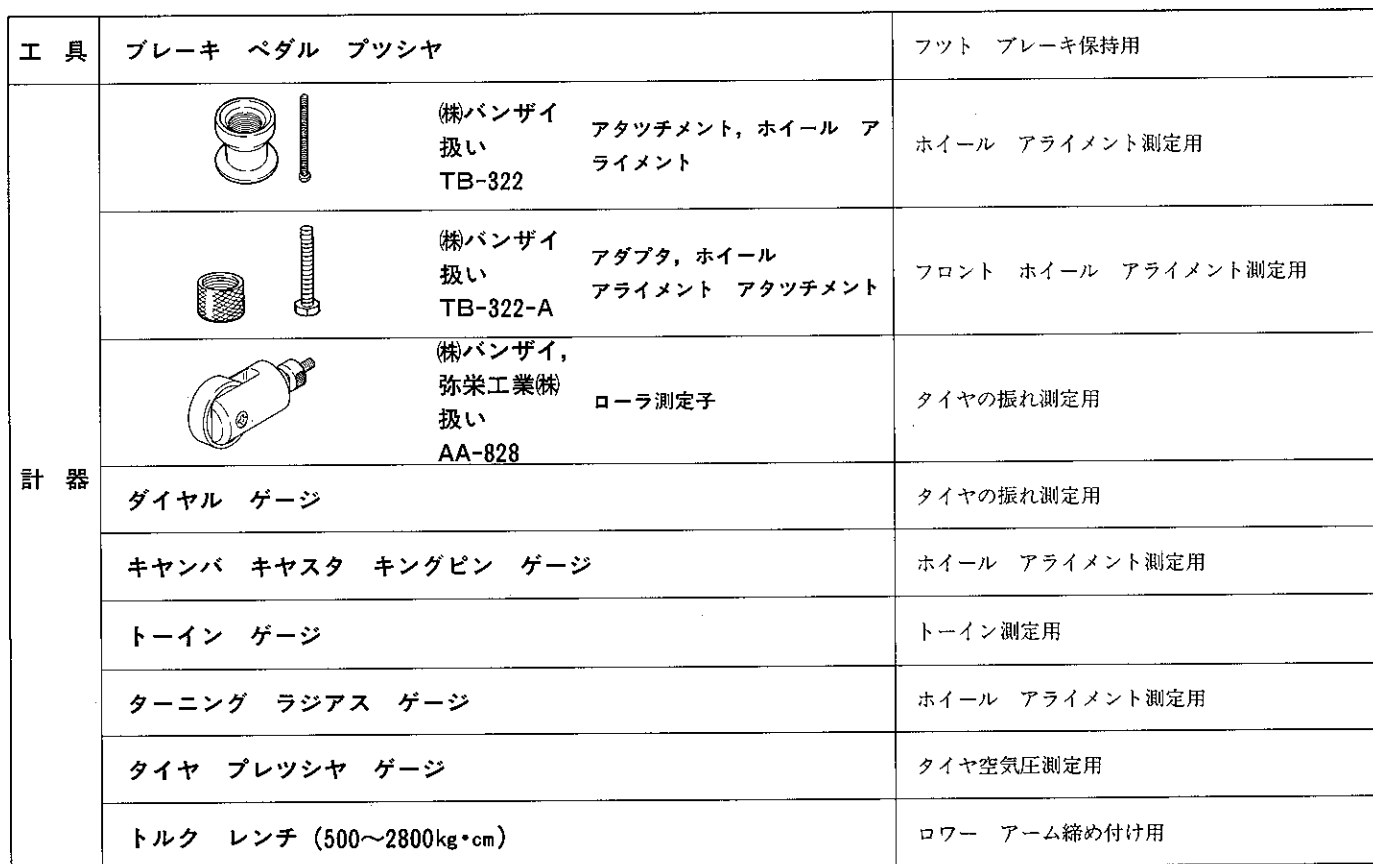 工 具 ブレーキ ペダル プツシヤ フツト ブレーキ保持用
計 器
㈱バンザイ
扱い
TB-322
アタツチメント, ホイール ア
ライメント
ホイール アライメント測定用
㈱バンザイ
扱い
TB-322-A
アダプタ, ホイール
アライメント アタツチメント
フロント ホイール アライメント測定用
㈱バンザイ,
弥栄工業㈱
扱い
AA-828
ローラ測定子
タイヤの振れ測定用
ダイヤル ゲージ タイヤの振れ測定用
キヤンバ キヤスタ キングピン ゲージ ホイール アライメント測定用
トーイン ゲージ トーイン測定用
ターニング ラジアス ゲージ ホイール アライメント測定用
タイヤ プレツシヤ ゲージ タイヤ空気圧測定用
トルク レンチ (500〜2800kg・cm) ロワー アーム締め付け用